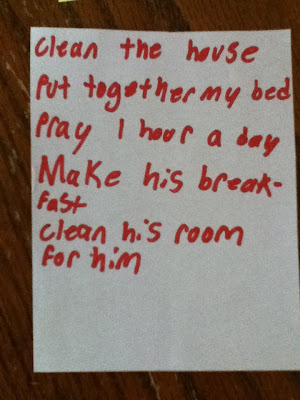 clean the house
Put together my bed
Pray 1 hour a day
Make his break-
fast
clean his room
for him